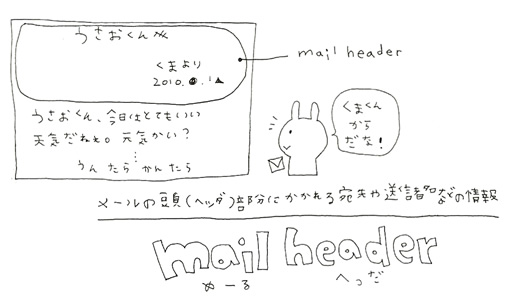 うさおくんへ
くまより
2010.●.1▲
mail header
うさおくん、今日はとてもいい
天気だねぇ。元気かい？
⋮
うんたらかんたら
くまくん
から
だな！
メールの頭(ヘッダ)部分にかかれる宛先や送信者名などの情報
mail header
めーる へっだ